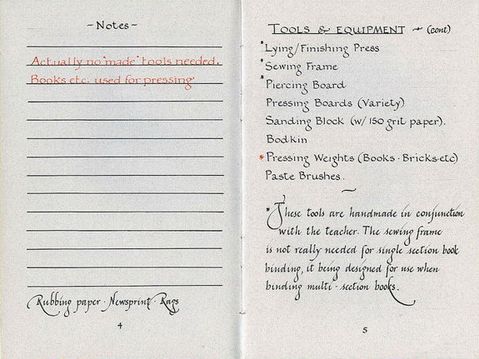 - Notes -
Actually no "made" tools needed.
Books etc. used for pressing.
Rubbing paper · Newsprint · Rags
4
TOOLS & EQUIPMENT - (cont)
*Lying/Finishing Press
*Sewing Frame
*Piercing Board
Pressing Boards (Variety)
Sanding Block (w/ 150 grit paper).
Bodkin
*Pressing Weights (Books · Bricks · etc)
Paste Brushes.
~
*These tools are handmade in conjunction
with the teacher. The sewing frame
is not really needed for single section book
binding, it being designed for use when
binding multi-section books.
5